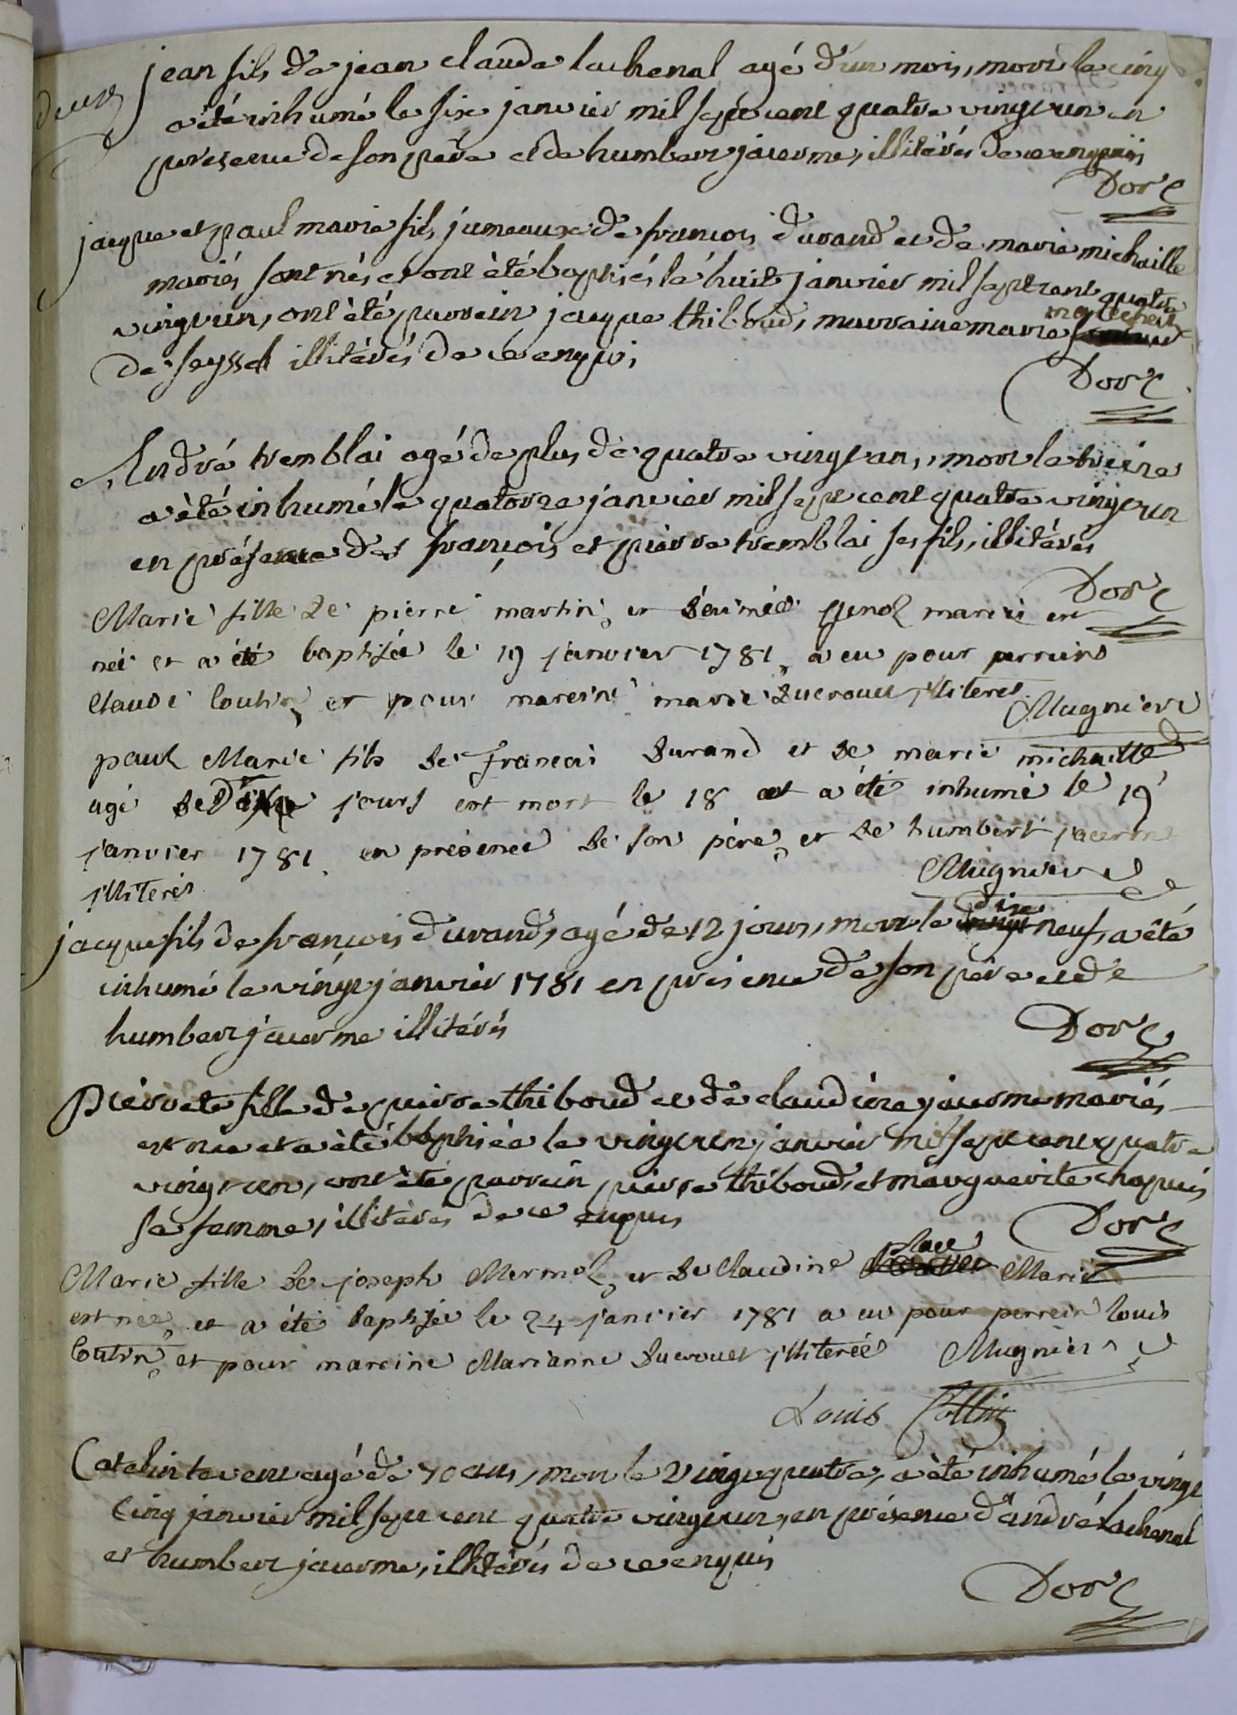 deux
jean fils de jean claude lachenal agé d'un mois, mort le cinq
a été inhumé le six janvier mil sept cent quatre vingt un en
presence de son père et de humbert jacerme, illitérés de ce enquis
Dor
jacque et paul marie fils jumeaux de francois durand et de marie michaille
mariés sont nés et ont été baptisés le huit janvier mil sept cent quatre
vingt un, ont été parrein jacque thiboud, marraine marie
de seyssel illitérés de ce enquis
Dor
André tremblai agé de plus de quatre vingt ans, mort le treize
a été inhumé le quatorze janvier mil sept cent quatre vingt un
en présence des françois et pierre tremblai ses fils, illitérés
Dor
Marie fille de pierre martin et d'aimée genol mariés est
née et a été baptisée le 19 janvier 1781 a eu pour perrein
claude coutin et pour mareine marie ducrouet illiteres
Mugnier
paul Marie fils de francois durand et de marie michaille
agé de dix jours est mort le 18 et a été inhumé le 19
janvier 1781 en présence de son père et de humbert jacerme
illiterés
Mugnier
jacque fils de françois durand, agé de 12 jours, mort le dix neuf, a été
inhumé le vingt janvier 1781 en présence de son père et de
humbert jacerme illitérés
Dor
Pierrete fille de pierre thiboud et de claudine jacerme mariés
est née et a été baptisée le vingt un janvier mil sept cent quatre
vingt un, ont été parrein pierre thiboud, et marguerite chapuis
sa femme, illitérés de ce enquis
Dor
Marie fille de joseph Mermol et de claudine place Mariés
est née et a été baptisée le 24 janvier 1781 a eu pour perrein louis
Coutin et pour mareine Marianne ducrouet illiterée Mugnier
Louis Collin
Catelin tavent agé de 70 ans, mort le vingt quatre, a été inhumé le vingt
cinq janvier mil sept cent quatre vingt un, en présence d'andré lachenal
et humbert jacerme, illitérés de ce enquis
Dor